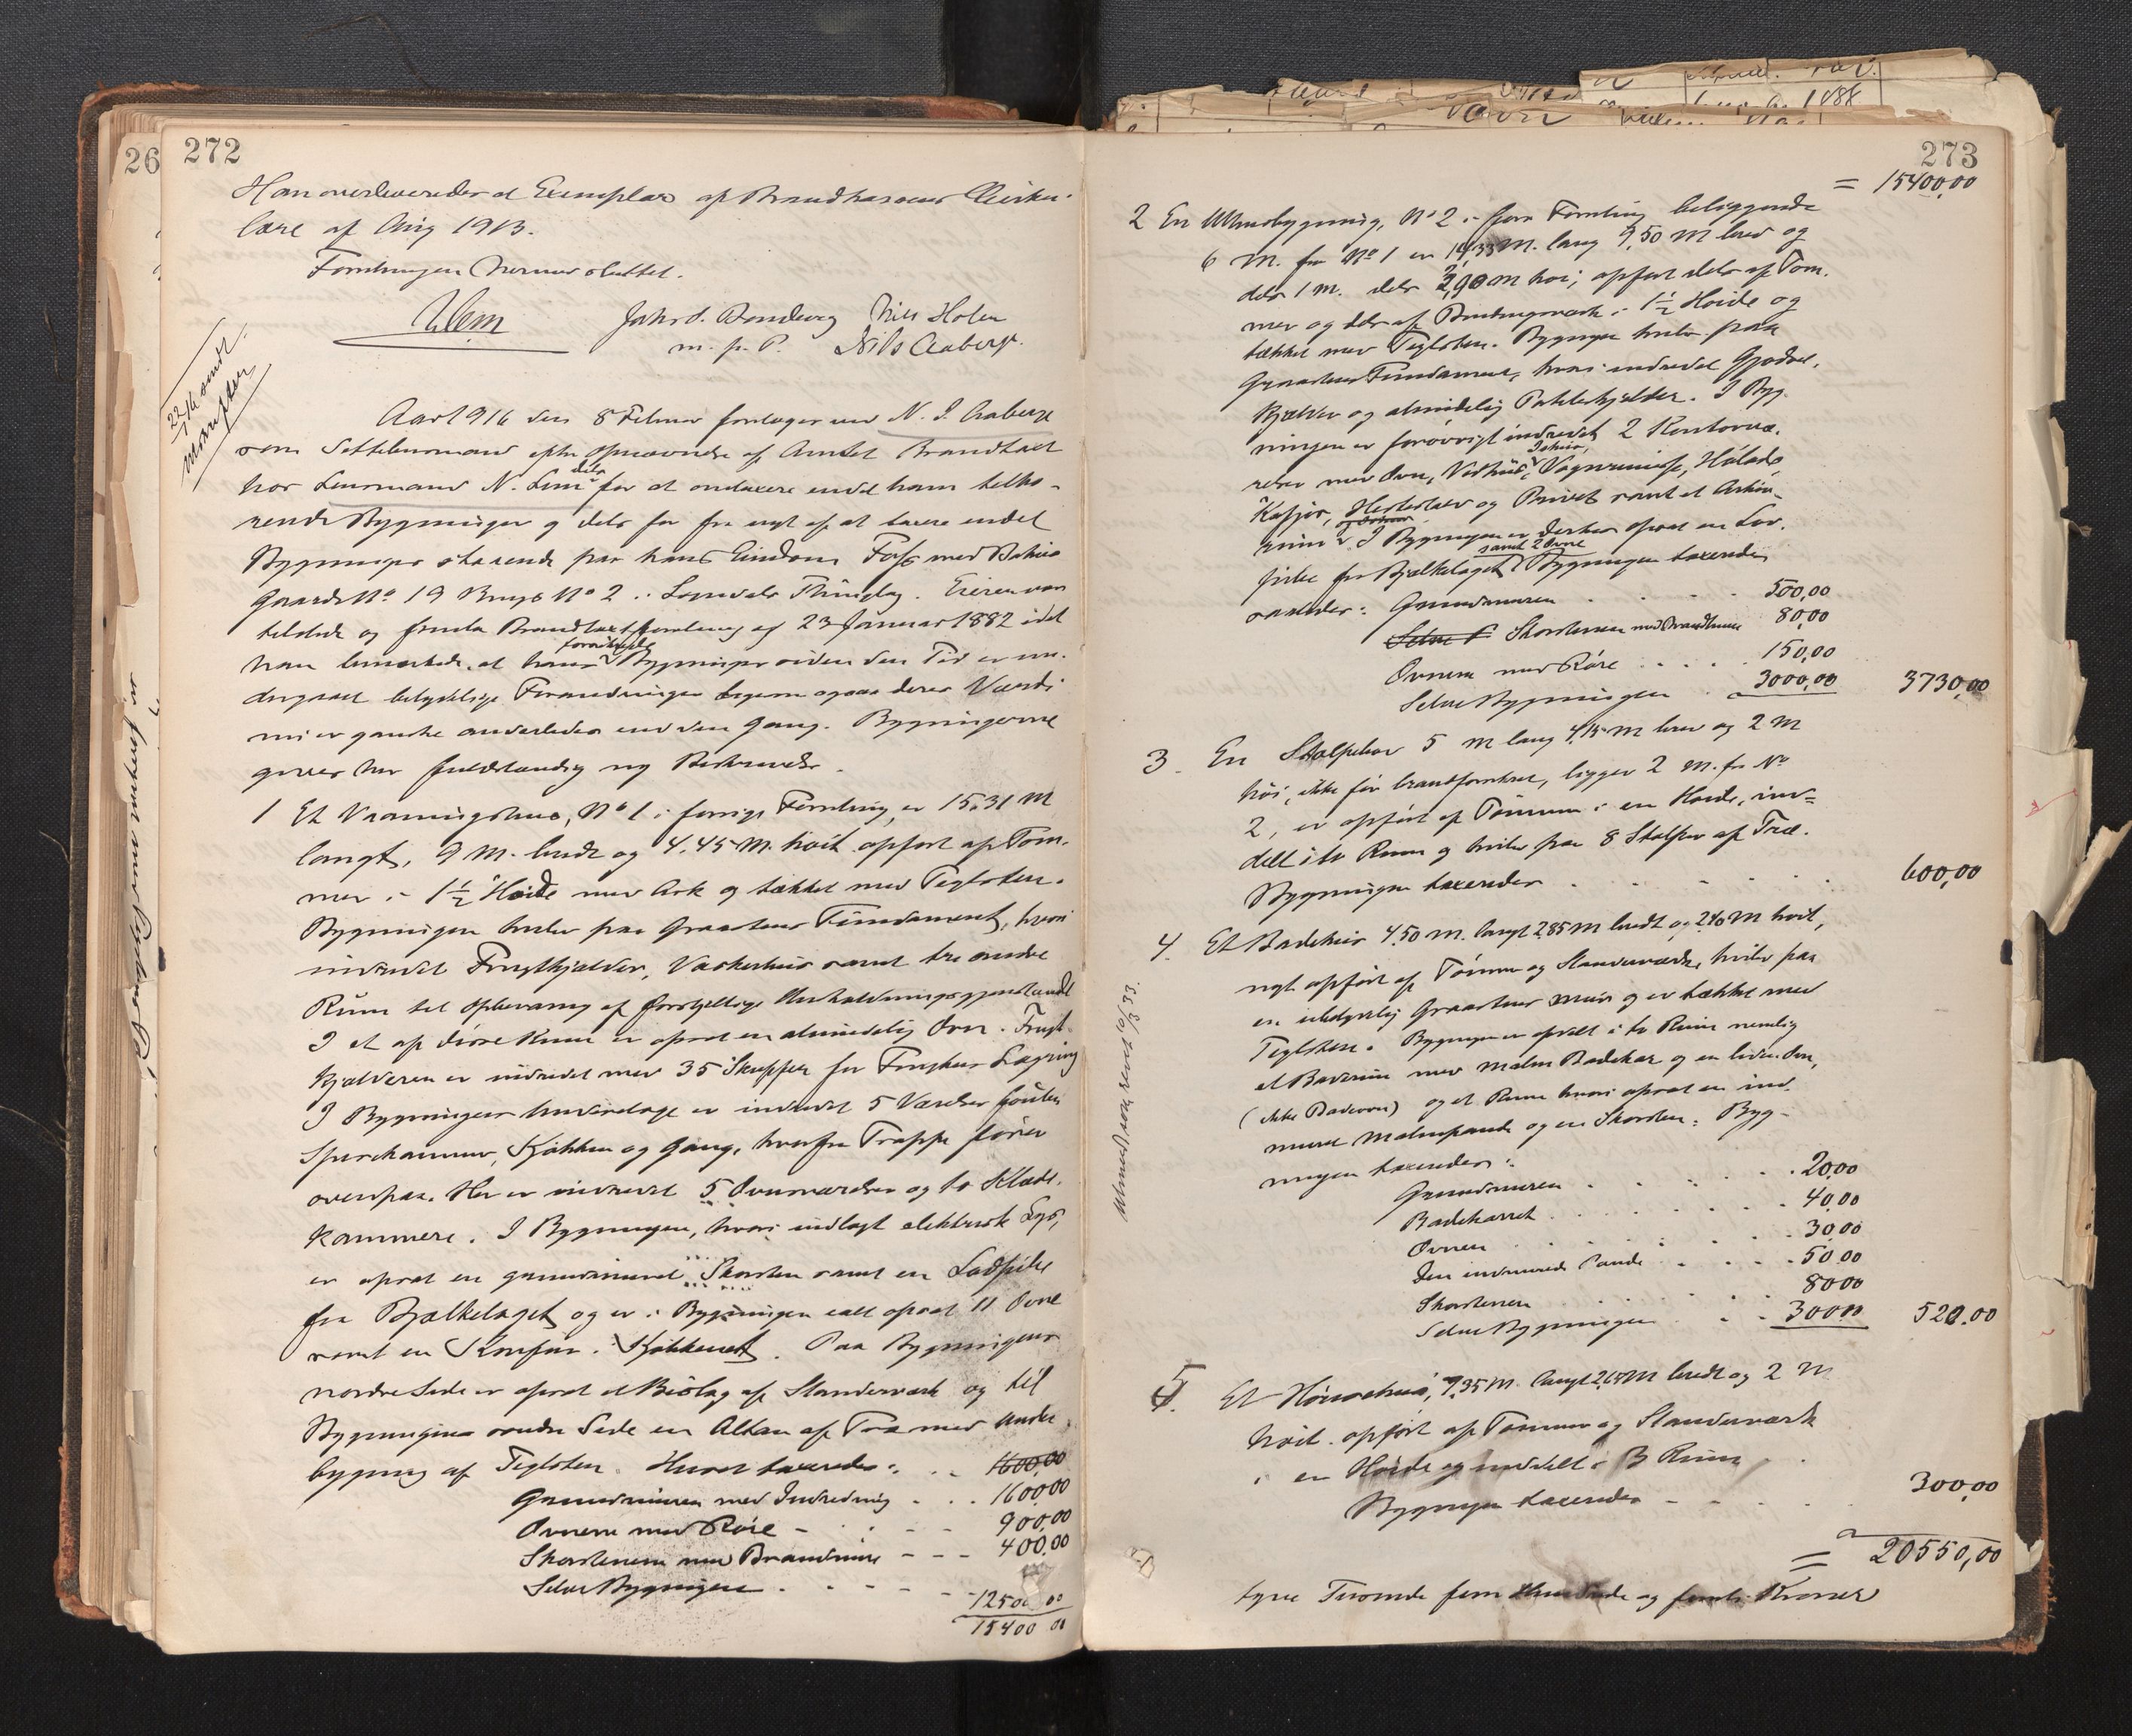 272
Han overleveredes et Exemplar af Brandkassens Cirku-
lære af Aug 1913.
Forretningen hermed sluttet.
Jakob S. Nils Holen
m. p. P. Nils Aaberge.
22/2 16 omdt.
Aar 1916 den 8 Februar foretoges ved N. I. Aaberge
som Settelensmand efter Opnævnelse af Amtet Brandtaxt
hos Lensmand N. Lem dels for at omtaxere endel ham tilhø-
rende Bygninger og dels for fra nyt af at taxere endel
Bygninger staaende paa hans Eiendom Foss med Bakka
Gaards No 19 Brugs No 2 i Sogndals Thinglag. Eieren var
tilstede og fremla Brandtaxtforretning af 23 Januar 1882 idet
han bemærkede, at hans forsikrede Bygninger siden den Tid er un-
dergaaet betydelige Forandringer ligesom ogsaa deres Værdi
nu er ganske anderledes end den Gang. Bygningerne
gives her fuldstændig ny Beskrivelse.
1 Et Vaaningshus, No 1 i forrige Forretning, er 15.31 M
langt, 9 M. bredt og 4.45 M. høit opført af Tøm-
mer i 1½ Høide med Ark og tækket med Teglsten.
Bygningen hviler paa Graastens Fundament, hvori
indredet Frugtkjælder, Vaskehus samt tre andre
Rum til Opbevaring af forskjellige Husholdningsgjenstande
I et af disse Rum er opsat en almindelig Ovn. Frugt-
kjælderen er indredet med 35 Skuffer for Frugters Lagring
I Bygningens hovedetage er indredet 5 Værelser foruden
Spisekammer, Kjøkken og Gang, hvorfra Trappe fører
ovenpaa. Her er indredet 5 Ovnsværelser og to Klæde-
kammere. I Bygningen, hvori indlagt elektrisk Lys,
er opsat en grundmuret Skorsten samt en Lodpibe
fra Bjælkelaget og er i Bygningen ialt opsat 11 Ovne
samt en Komfur i Kjøkkenet. Paa Bygningens
nordre Side er opsat et Bislag af Standerværk og til
Bygningens søndre Side en Altan af Træ med under-
bygning af Teglsten. Huset taxeredes: 1600,00
Grundmuren med Indredning 1600 00
Ovnene med Røre 900,00
Skorstenene med Brandmure 400,00
Selve Bygningen 12500 00
15400 00
273
= 15400,00
2 En Udhusbygning, No 2 i forr Forretning beliggende
6 M. fra No 1 er 14,33 M. lang 9,50 M bred og
dels 1 M. dels 2,90 M høi, opført dels af Tøm-
mer og dels af Bindingsværk i 1½ Høide og
tækket med Teglsten. Bygningen hviler paa
Graastens Fundament, hvori indredet Gjødsel-
kjælder og almindelig Potetkjælder. I Byg-
ningen er forøvrigt indredet 2 Kontorvæ-
relser med Ovn, Vedhus, Ishus, Vognremisse, Hølade,
Kufjøs, Hestestald og Privet samt et Arkiv-
rum. I Bygningen er derhos opsat en Lod-
pibe fra Bjælkelaget samt 2 Ovne Bygningen taxeredes
saaledes: Grundmuren 500,00
Skorstenen med Brandmur 80,00
Ovnene med Røre 150,00
Selve Bygningen 3000,00 3730,00
3. En Stolpebod 5 M lang 4,15 M bred og 2 M
høi, ikke før brandforsikret, ligger 2 M. fra No
2, er opført af Tømmer i en Høide, ind-
delt i to Rum og hviler paa 8 Stolper af Træ.
Bygningen taxeredes 600,00
4. Et Badehus 4,50 M. langt 2,85 M bredt og 2,40 M høit,
nyt opført af Tømmer og Standerværk, hviler paa
en Graastens Mur og er tækket med
Teglsten. Bygningen er opdelt i to Rum nemlig
et Baderum med Malm Badekar og en liden Ovn,
(ikke Badeovn) og et Rum hvori opsat en ind-
muret Malmpande og en Skorsten. Byg-
ningen taxeredes:
Grundmuren 20,00
Badekarret 40,00
Ovnen 30,00
Den indmurede Pande 50,00
Skorstenen 80 00
Selve Bygningen 300 00 520,00
5. Et Hønsehus, 7,35 M. langt 2,65 M bredt og 2 M
høit opført af Tømmer og Standerværk
i en Høide og inddelt i 3 Rum
Bygningen taxeredes 300,00
= 20550,00
tyve Tusende fem Hundrede og femti Kroner